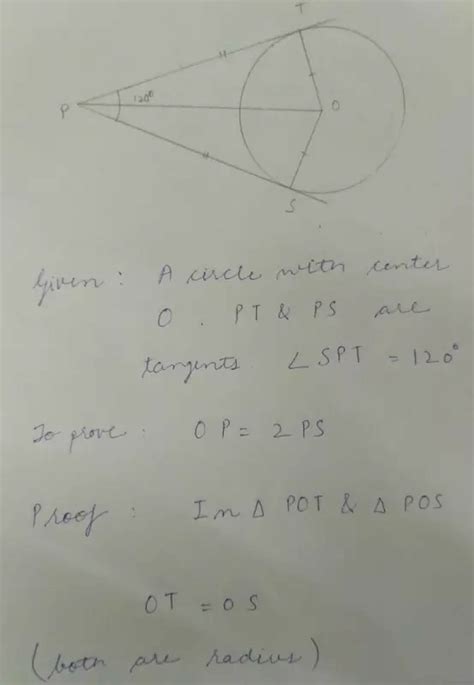 T
120°
P
O
S
Given : A circle with center
O . PT & PS are
tangents. ∠SPT = 120°
To prove : OP = 2 PS
Proof : In Δ POT & Δ POS
OT = OS
(both are radius)